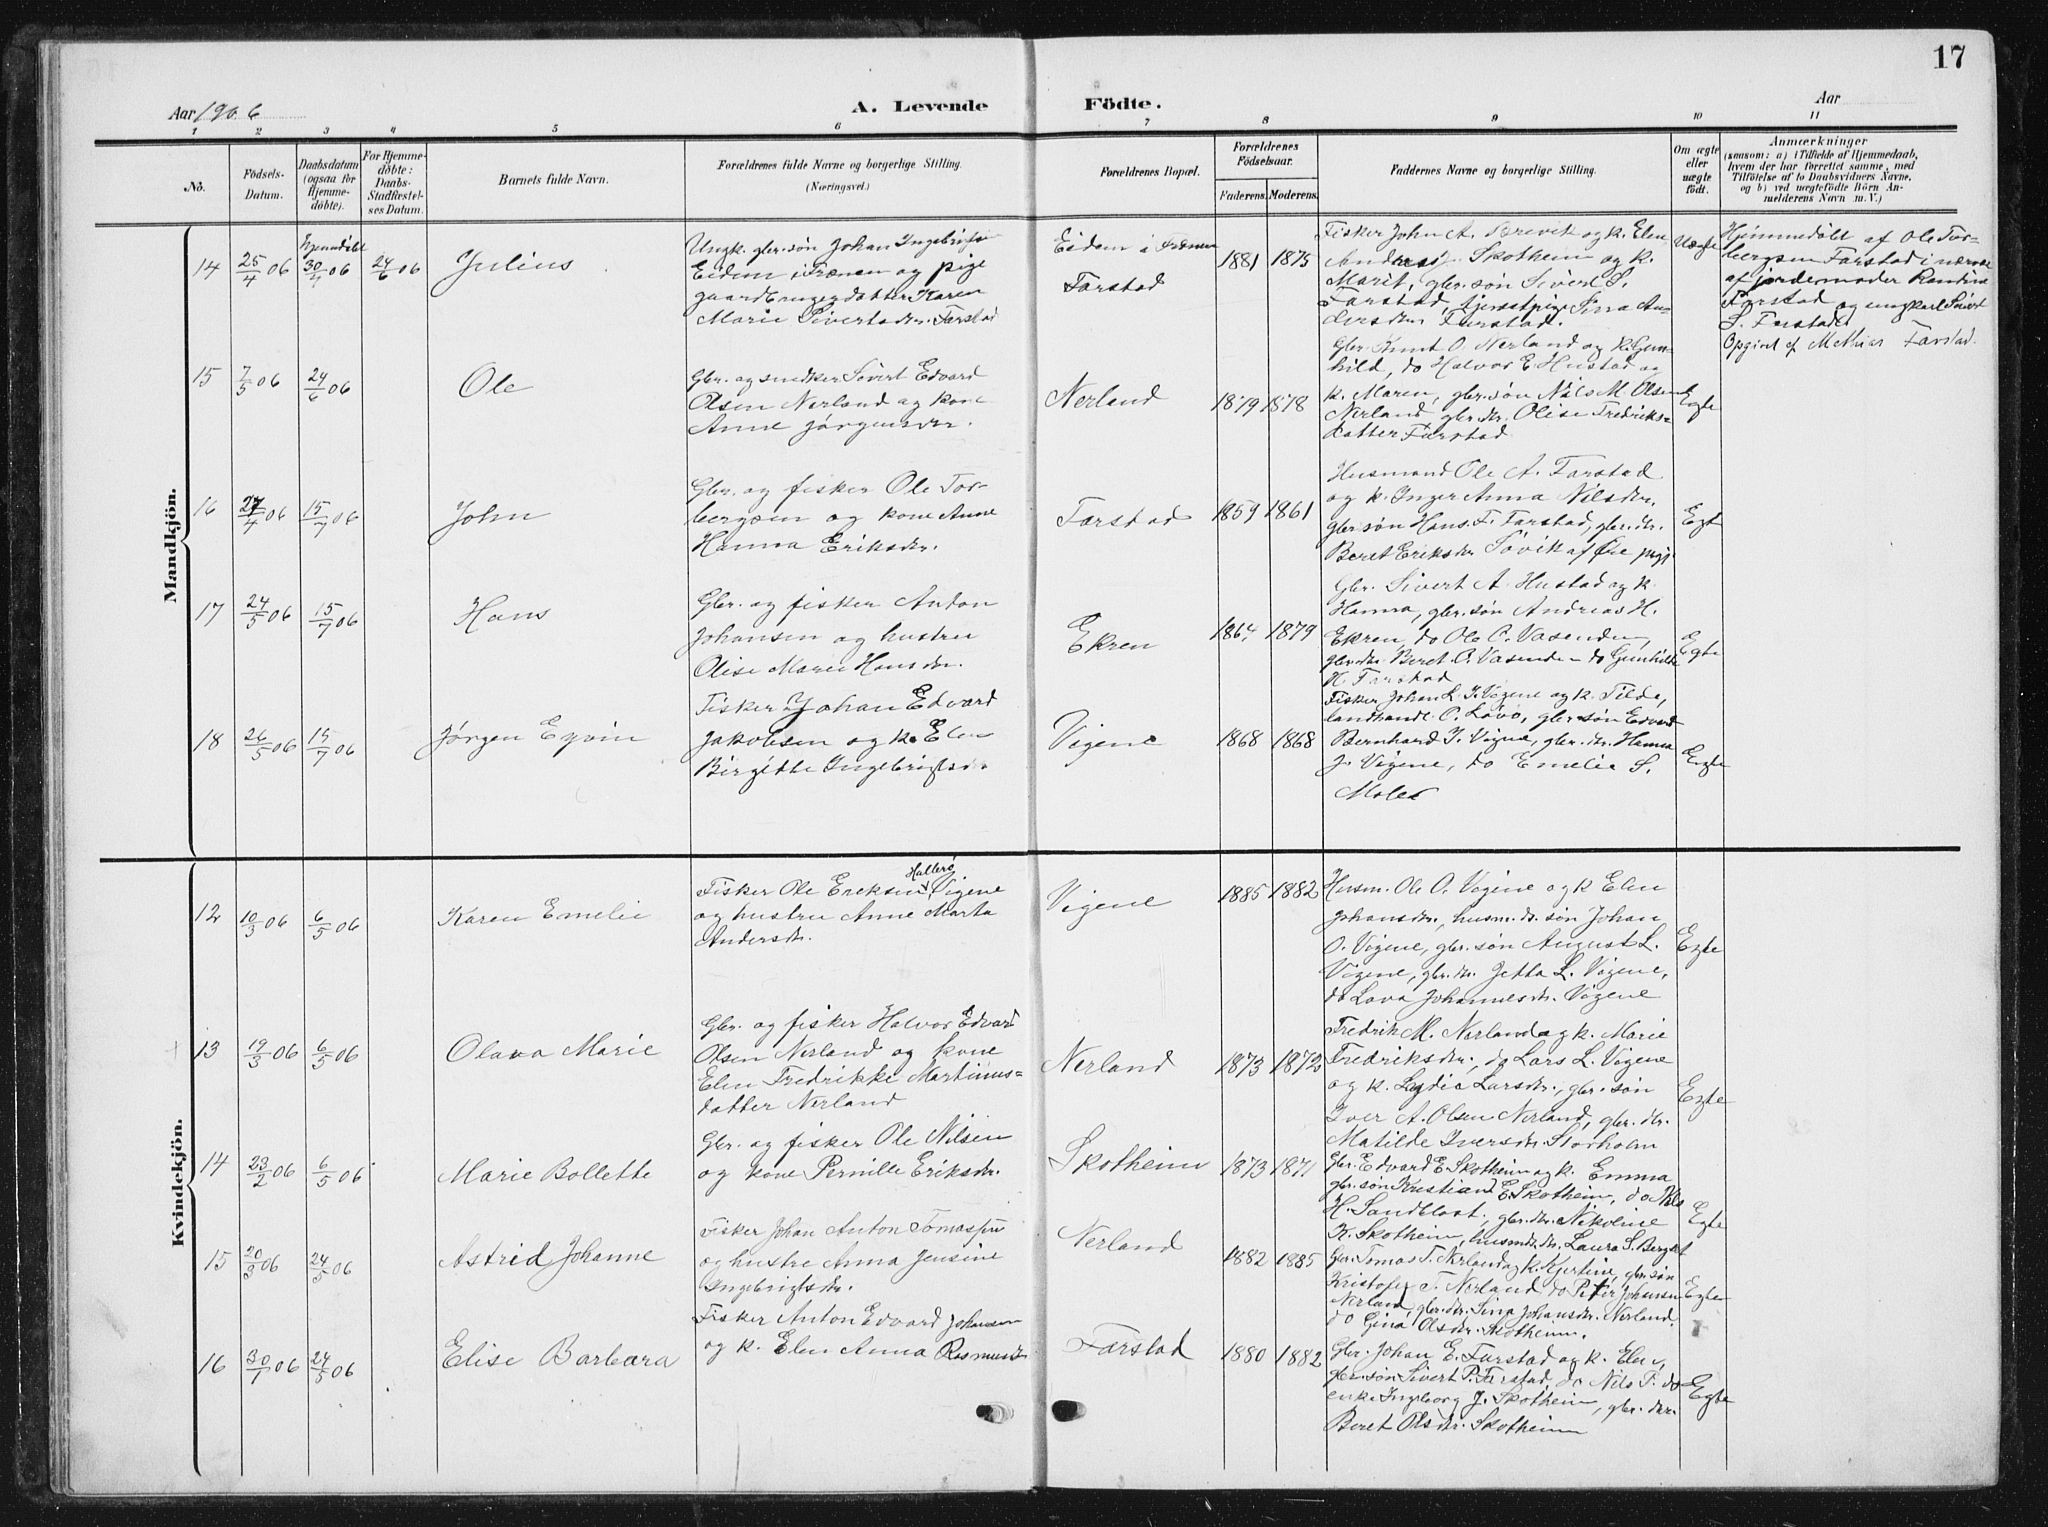 17
Aar 1906
A. Levende
Födte.
Aar
1 2 3 4 5 6 7 8 9 10 11
No.
Födsels-
Datum.
Daabsdatum
(ogsaa for
Hjemme-
döbte).
For Hjemme-
döbte:
Daabs-
Stadfæstel-
ses Datum.
Barnets fulde Navn.
Forældrenes fulde Navne og borgerlige Stilling.
(Næringsvei.)
Forældrenes Bopæl.
Forældrenes
Födselsaar.
Faderens. Moderens.
Faddernes Navne og borgerlige Stilling.
Om ægte
eller
uægte
födt.
Anmærkninger
(saasom: a) i Tilfælde af Hjemmedaab,
hvem der har forrettet samme, med
Tilföielse af to Daabsvidners Navne,
og b) ved uægtefödte Börn An-
melderens Navn m. V.)
Mandkjön.
14
25/4 06
Hjemmdøbt
30/4 06
24/6 06
Julius
Ungk. gbr. søn Johan Ingebrigtsen
Eidem i Frænen og pige
gaardbrugerdatter Karen
Marie Sivertsdr. Farstad
Eidem i Frænen
Farstad
1881 1875
Fisker John A. Brevik og k. Elen
Andreas J. Skotheim og k.
Marit, gbr. søn Sivert S.
Farstad, tjenestpige Sina An-
dersdr. Farstad.
Uægte
Hjemmedøbt af Ole Tor-
bergsen Farstad i nærvær
af jordemoder Randine
Farstad og ungkarl Sivert
S. Farstad
Opgivet af Mathias Farstad.
15
7/5 06
24/6 06
Ole
Gbr. og snedker Sivert Edvard
Olsen Nerland og kone
Anne Jørgensdr.
Nerland
1879 1878
Gbr. Knut O. Nerland og k. Gun-
hild, do Halvor E Hustad og
k. Maren, gbr. søn Nils M. Olsen
Nerland gbr. dr. Olise Fredriks-
datter Farstad
Egte
16
27/4 06
15/7 06
John
Gbr. og fisker Ole Tor-
bergsen og kone Anne
Hanna Eriksdr.
Farstad
1859 1861
Husmand Ole A. Farstad
og k. Inger Anna Nilsdr.
gbr. søn Hans F. Farstad, gbr. dr.
Beret Eriksdr Søvik af Øre prgj
Egt
17
24/5 06
15/7 06
Hans
Gbr. og fisker Anton
Johansen og hustru
Olise Marie Hansdr.
Ekren
1864 1879
Gbr. Sivert A. Hustad og k.
Hanna, gbr. søn Andreas H.
Ekren, do Ole O. Vasenden,
gbr. dr. Beret O. Vasende - do Gunhilde
H. Farstad
Egte
18
26/5 06
15/7 06
Jørgen Eyvin
Fisker Johan Edvard
Jakobsen og k. Elen
Birgitte Ingebrigtsdr
Vigene
1868 1868
Fisker Johan L. J. Vigene og k. Tilda,
landhandl. O. Løvø, gbr. søn Edvard
Bernhard J. Vigne, gbr. dr. Hanna
J. Vigene, do Emelie S.
Malen
Egte
Kvindekjön.
12
10/3 06
6/5 06
Karen Emelie
Hallerø
Fisker Ole Ereksen Vigene
og hustru Anne Marta
Andersdr.
Vigene
1885 1882
Husm. Ole O. Vigene og k Elen
Johansdr., husm. ds. søn Johan
O. Vigene, gbr. søn August L.
Vigene, gbr. dr. Jetta L. Vigene,
do Lava Johannesdr. Vigene
Egte
13
19/3 06
6/5 06
Olava Marie
Gbr. og fisker Halvor Edvard
Olsen Nerland og kone
Elen Fredrikke Martinus-
datter Nerland
Nerland
1873 1872
Fredrik M. Nerland og k. Marie
Fredriksdr., do Lars L. Vigene
og k. Lydia Larsdr., gbr. søn
Iver A. Olsen Nerland, gbr. dr.
Matilde Iversdr. Storholm
Egte
14
23/2 06
6/5 06
Marie Bollette
Gbr. og fisker Ole Nilsen
og kone Pernille Eriksdr.
Skotheim
1873 1871
Gbr. Edvard E. Skotheim og k. Emma
gbr. søn Kristian E. Skotheim, do Nils
H. Sandblost, gbr. dr. Nikoline
K. Skotheim, husmds. dr. Laura S. Bergtet
Egte
15
20/3 06
24/5 06
Astrid Johanne
Fisker Johan Anton Tomassen
og hustru Anna Jensine
Ingebrigtsdr.
Nerland
1882 1885
Gbr. Tomas T. Nerland og k. Kjerstine, gbr. søn
Kristofer T. Nerland do Peter Johansen
Nerland, gbr. dr. Sina Johansdr. Nerland.
do Gina Olsdr. Skotheim.
Egte
16
30/1 06
24/5 06
Elise Barbara
Fisker Anton Edvard Johansen
og k. Elen Anna Rasmusdr
Farstad
1880 1882
Gbr. Johan E. Farstad og k. Elen,
gbr. søn Sivert P. Farstad, do Nils T. do
enke Ingeborg J. Skotheim, gbr. dr.
Beret Olsdr. Skotheim
Egte